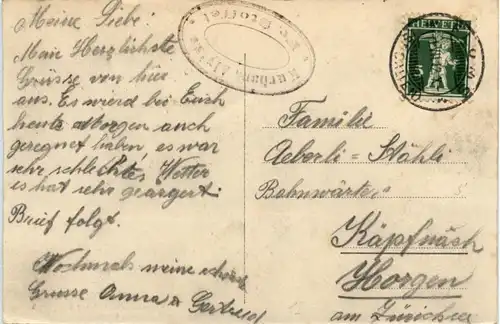 Meine Liebe:
Meine Herzlichste
Grüsse von hier
aus. Es wierd bei Euch
heute Morgen auch
geregnet haben es war
sehr schlechtes Wetter
es hat sehr geärgert.
Brief folgt.
Nochmals meine
Grüsse Anna & Gertrud
Kurhaus
HELVETIA
5
Familie
Aeberli=Stähli
Bahnwärter
Käpfnach
Horgen
am Zürichsee